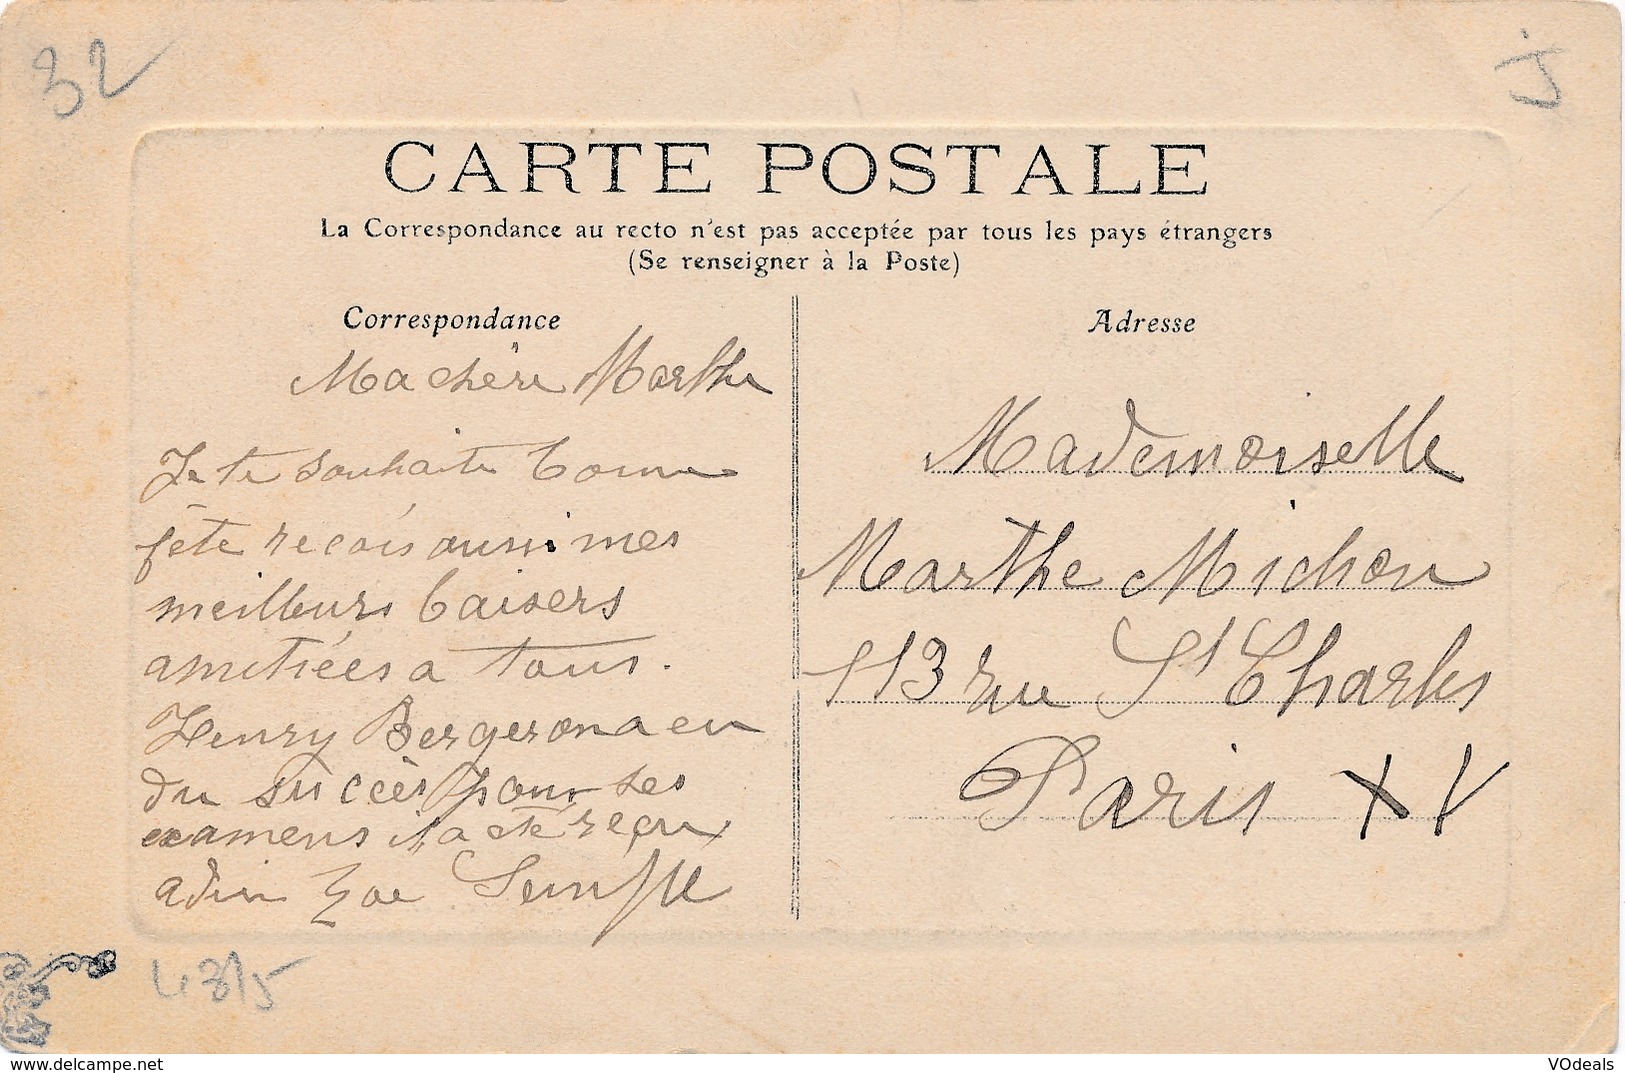 32
J
CARTE POSTALE
La Correspondance au recto n'est pas acceptée par tous les pays étrangers
(Se renseigner à la Poste)
Correspondance
Ma chère Marthe
Je te souhaite bonne
fête recois aussi mes
meilleurs baisers
amitiées a tous.
Henry Bergerona eu
du succès pour ses
examens il a été reçu
adieu Zoe
Adresse
Mademoiselle
Marthe Michon
113 rue St Charles
Paris XV
4315
https://www.delcampe.net
VOdeals